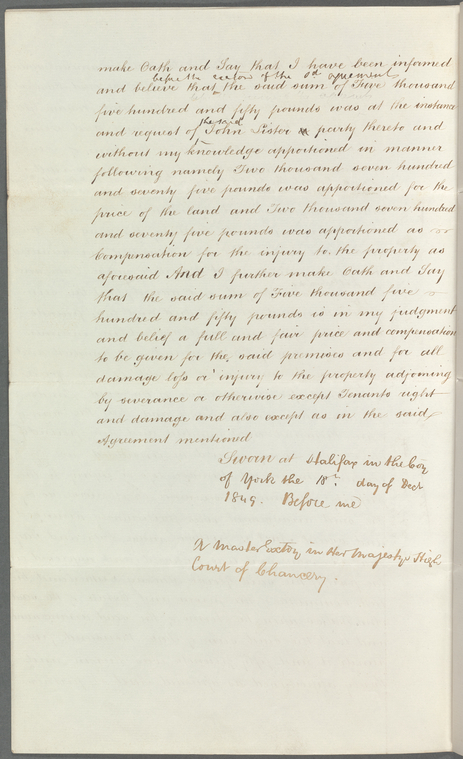 make Oath and Say that I have been informed
before the execution of the sd agreement
and believe that the said sum of Five thousand
five hundred and fifty pounds was at the instance
the said
and request of John Lister party thereto and
without my knowledge apportioned in manner
following namely Two thousand seven hundred
and seventy five pounds was apportioned for the
price of the land and Two thousand seven hundred
and seventy five pounds was apportioned as
Compensation for the injury to the property as
aforesaid And I further make Oath and Say
that the said sum of Five thousand five
hundred and fifty pounds is in my judgment
and belief a full and fair price and compensation
to be given for the said premises and for all
damage loss or injury to the property adjoining
by severance or otherwise except Tenants right
and damage and also except as in the said
Agreement mentioned
Sworn at Halifax in the Coy
of York the 18th day of Decr
1849. Before me
A Master Extoy in Her Majestys High
Court of Chancery.